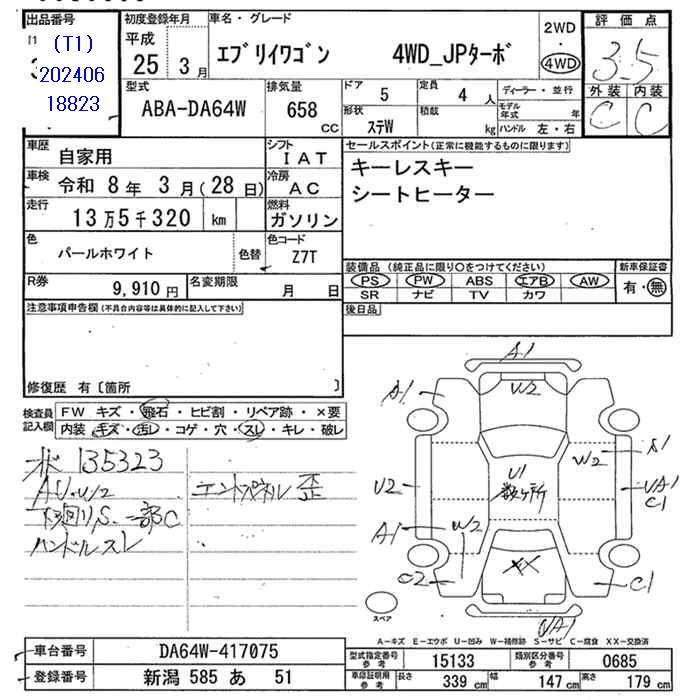 出品番号
(T1)
202406
18823
初度登録年月
平成
25年 3月
車名・グレード
エブリイワゴン 4WD_JPターボ
2WD
・
4WD
評価点
3.5
外装 内装
C C
型式
ABA-DA64W
排気量
658 cc
ドア 5
定員 4 人
ディーラー・並行
形状 ステW
積載 kg
モデル年式 年
ハンドル 左・右
車歴 自家用
シフト IAT
車検 令和 8年 3月(28日)
冷房 AC
走行 13万5千320 km
燃料 ガソリン
色 パールホワイト 色替
色コード Z7T
R券 9,910円
名変期限 月 日
セールスポイント(正常に機能するものに限ります)
キーレスキー
シートヒーター
装備品 (純正品に限り○をつけてください)
PS PW ABS エアB AW
SR ナビ TV カワ
新車保証書
有・無
後日品
注意事項申告欄(不具合内容等は具体的に記入して下さい)
修復歴 有〔箇所 〕
検査員記入欄
FW キズ・飛石・ヒビ割・リペア跡・×要
内装 キズ・汚レ・コゲ・穴・スレ・キレ・破レ
135323
AU.W2
下回りS.一部C
ハンドルスレ
エンドパネル歪
A1
A1
U2
W2
S1
U2
U1
数ヶ所
UA1
C1
A1
W2
C2
XX
C1
UA1
スペア
A-キズ E-エクボ U-凹み W-補修跡 S-サビ C-腐食 XX-交換済
車台番号 DA64W-417075
登録番号 新潟 585 あ 51
型式指定番号 参考 15133
類別区分番号 参考 0685
車庫証明用 参考 長さ 339 cm 幅 147 cm 高さ 179 cm